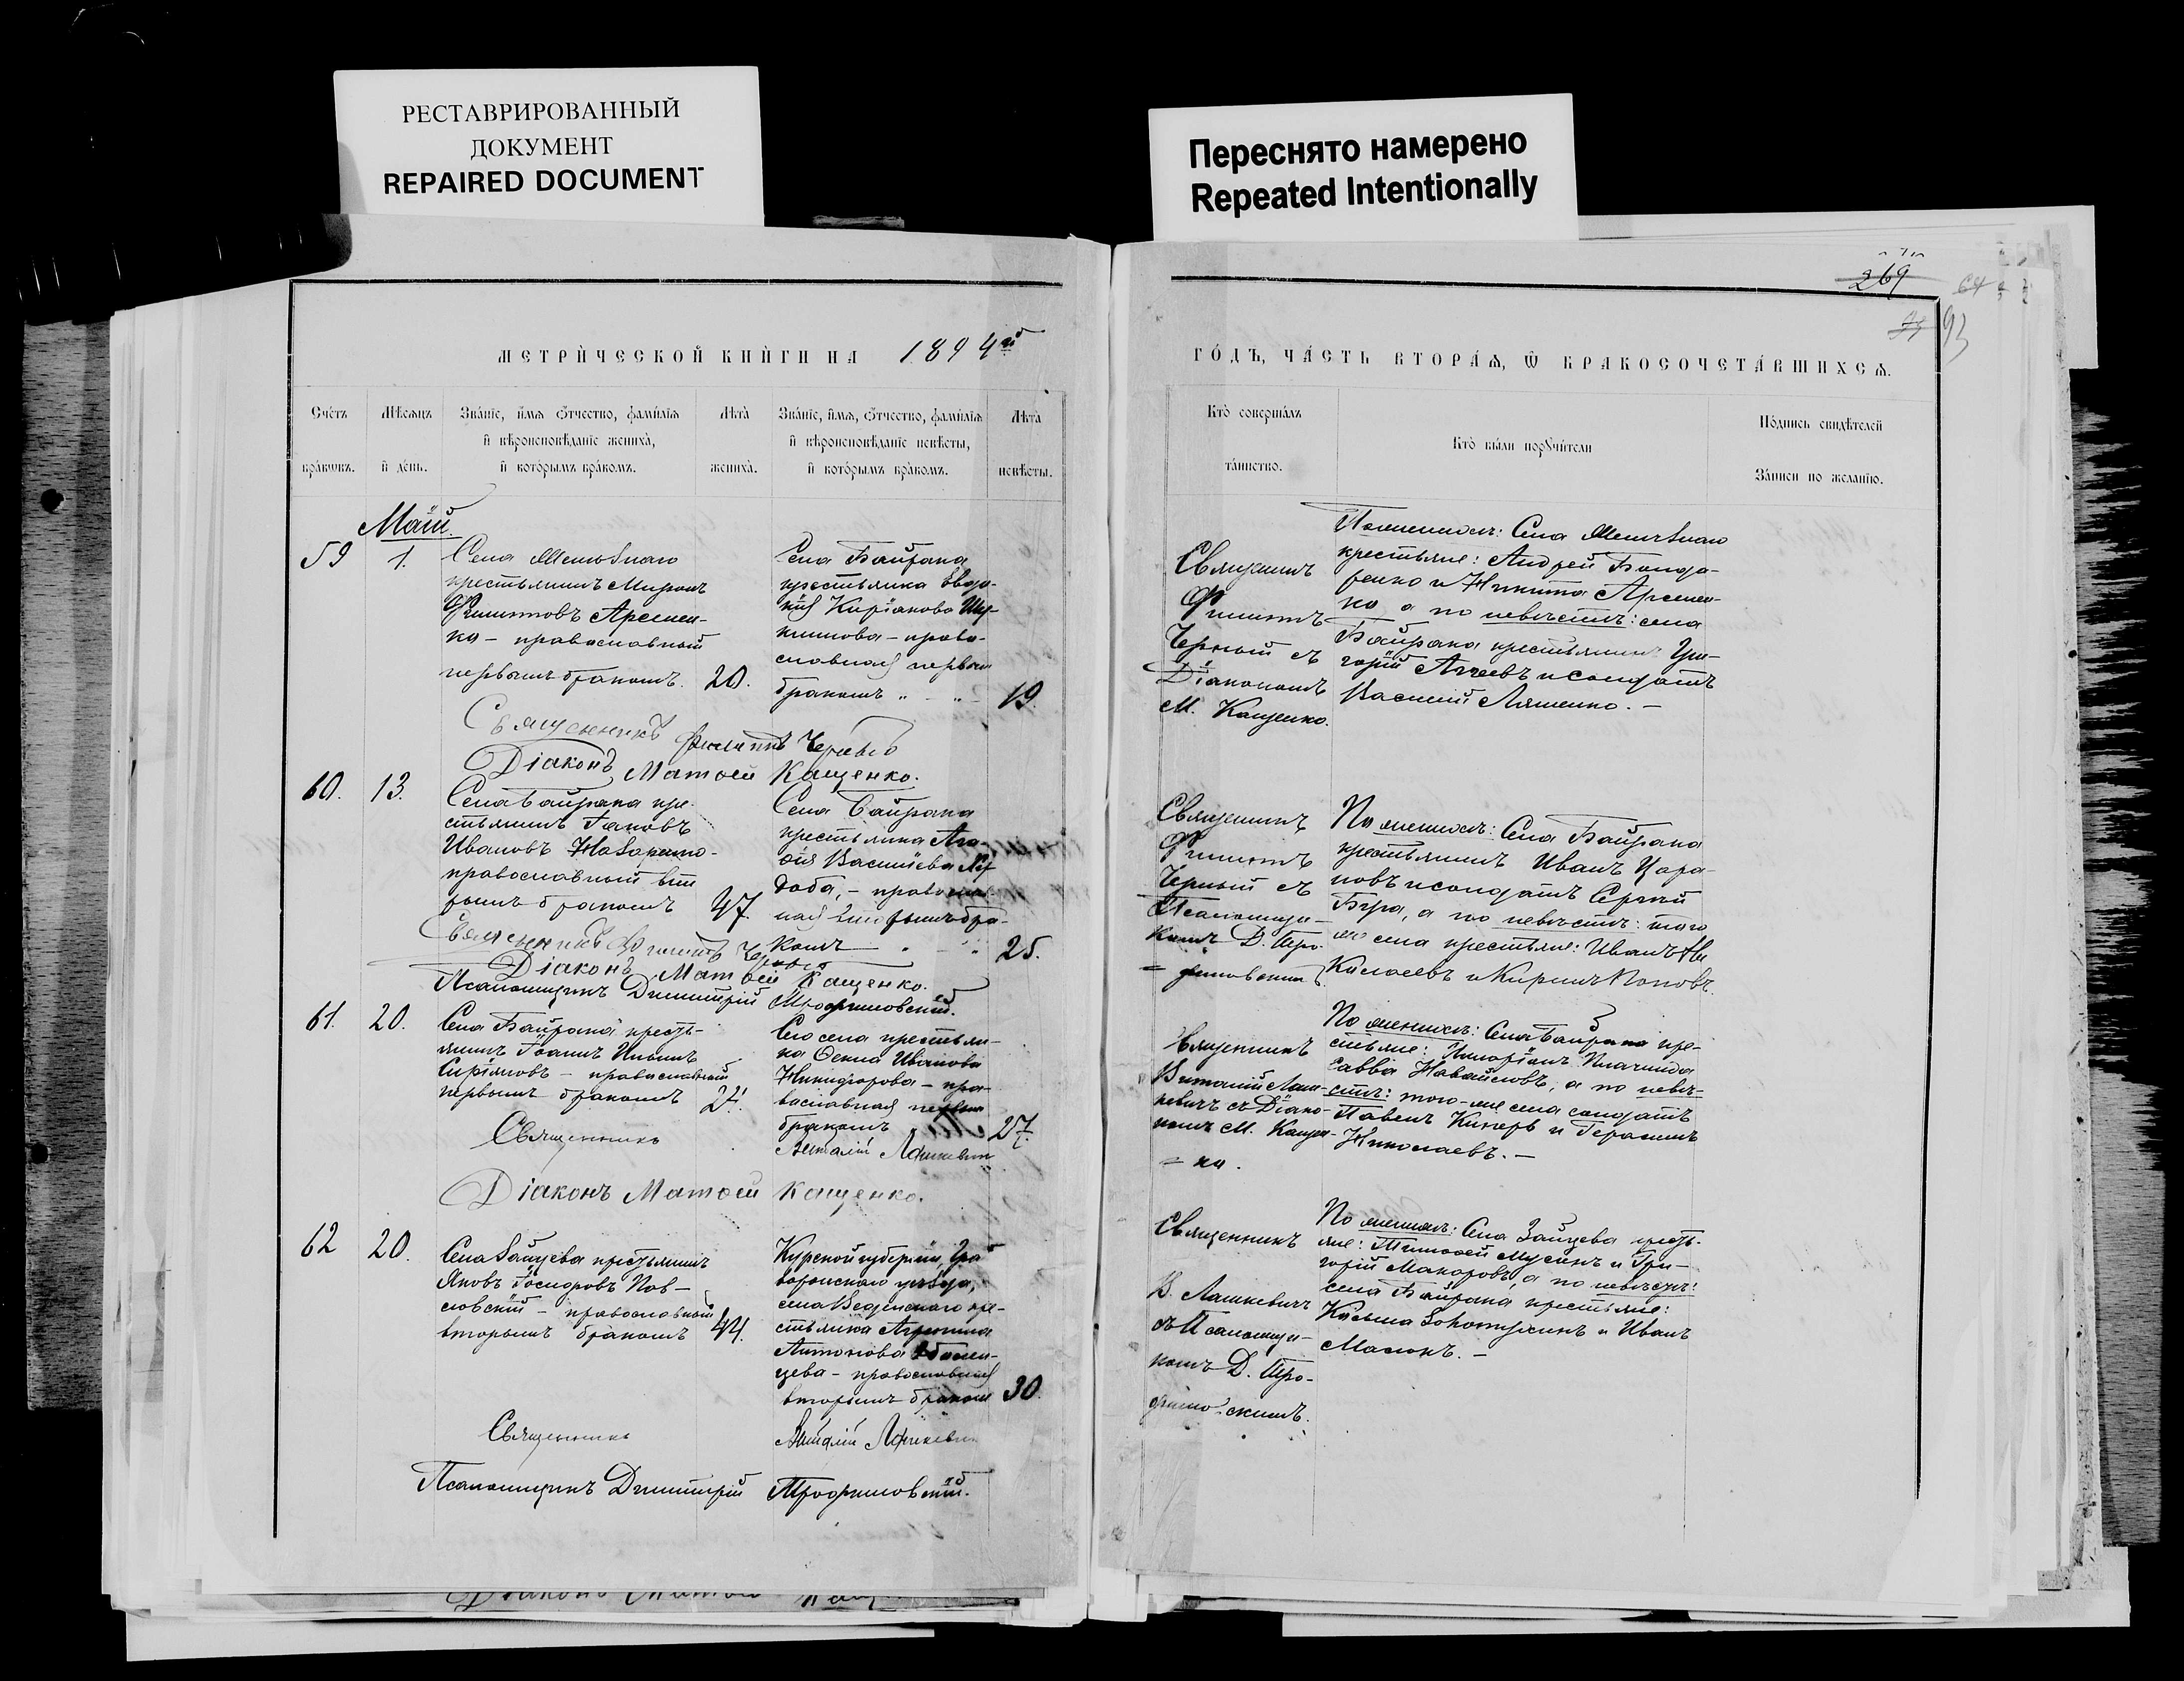 РЕСТАВРИРОВАННЫЙ
ДОКУМЕНТ
REPAIRED DOCUMENT
Переснято намерено
Repeated Intentionally
269
93
МЕТРИЧЕСКОЙ КНИГИ НА 1894й
ГОДЪ, ЧАСТЬ ВТОРАѦ, Ѡ БРАКОСОЧЕТАВШИХСѦ.
Счетъ браковъ.
Мѣсяцъ и день.
Званіе, имя, отчество, фамилія
и вѣроисповѣданіе жениха,
и которымъ бракомъ.
Лѣта
жениха.
Званіе, имя, отчество, фамилія
и вѣроисповѣданіе невѣсты,
и которымъ бракомъ.
Лѣта
невѣсты.
Кто совершалъ
таинство.
Кто были поручители
Подпись свидѣтелей
записи по желанію.
Май
59
1.
Села
крестьянинъ Миронъ
Филипповъ Арсенен-
ко - православный
первымъ бракомъ.
20.
Села Байрака
крестьянка Евдо-
кія Киріакова
- право-
славная первым
бракомъ
19.
Священникъ
Филиппъ
Черный съ
Діакономъ
М. Кащенко.
По женихѣ: Села
крестьяне: Андрей Бонда-
ренко и Никита Арсенен-
ко а по невѣстѣ: села
Байрака крестьянинъ Гри-
горій и солдатъ
Василій Ляшенко. -
Священникъ Филиппъ Черный
Діаконъ Матѳей Кащенко.
60.
13.
Села Байрака кре-
стьянинъ Іаковъ
Ивановъ
православный вто
рымъ бракомъ
47.
Села Байрака
крестьянка Ага-
ѳія Васильева
- православ
ная вторымъ бра-
комъ
25.
Священникъ
Филиппъ
Черный съ
Псаломщи-
комъ Д. Тро-
= фимовским
По женихѣ: Села Байрака
крестьянинъ Иванъ Цара-
новъ и солдатъ Сергѣй
Бура, а по невѣстѣ: того
же села крестьяне: Иванъ Ни
колаевъ и Кириллъ Поповъ.
Священникъ Филиппъ Черный
Діаконъ Матѳей Кащенко.
Псаломщикъ Димитрій Трофимовскій.
61.
20.
Села Байрака кресть-
янинъ Іоаннъ
- православный
первымъ бракомъ
Сего села крестьян-
ка Ѳекла Иванова
Никифорова - пра-
вославная первым
бракомъ
27.
Священникъ
Виталій Лаш-
кевичъ съ Діако-
номъ М. Кащен-
= ко.
По женихѣ: Села Байрака кре-
стьяне: Иларіонъ
Савва а по невѣ-
стѣ: того-же села солдатъ
Павелъ и Герасимъ
Николаевъ. -
Священникъ Виталій Лашкевич
Діаконъ Матѳей Кащенко.
62
20.
Села Зайцева крестьянинъ
Яковъ Іосифовъ Пав-
ловскій - православный
вторымъ бракомъ
44.
Курской губерніи, Грай
воронскаго уѣзда,
села Веденскаго кре-
стьянка Агрипина
Антонова
цева - православная
вторымъ браком
30.
Священникъ
В. Лашкевичъ
съ Псаломщи-
комъ Д. Тро-
фимовскимъ.
По женихѣ: Села Зайцева кресть-
яне: Тимоѳей и Гри-
горій Макаровъ, а по невѣстѣ:
села Байрака крестьяне:
Козьма и Иванъ
Масюкъ. -
Священникъ Виталій Лашкевич
Псаломщикъ Димитрій Трофимовскій.